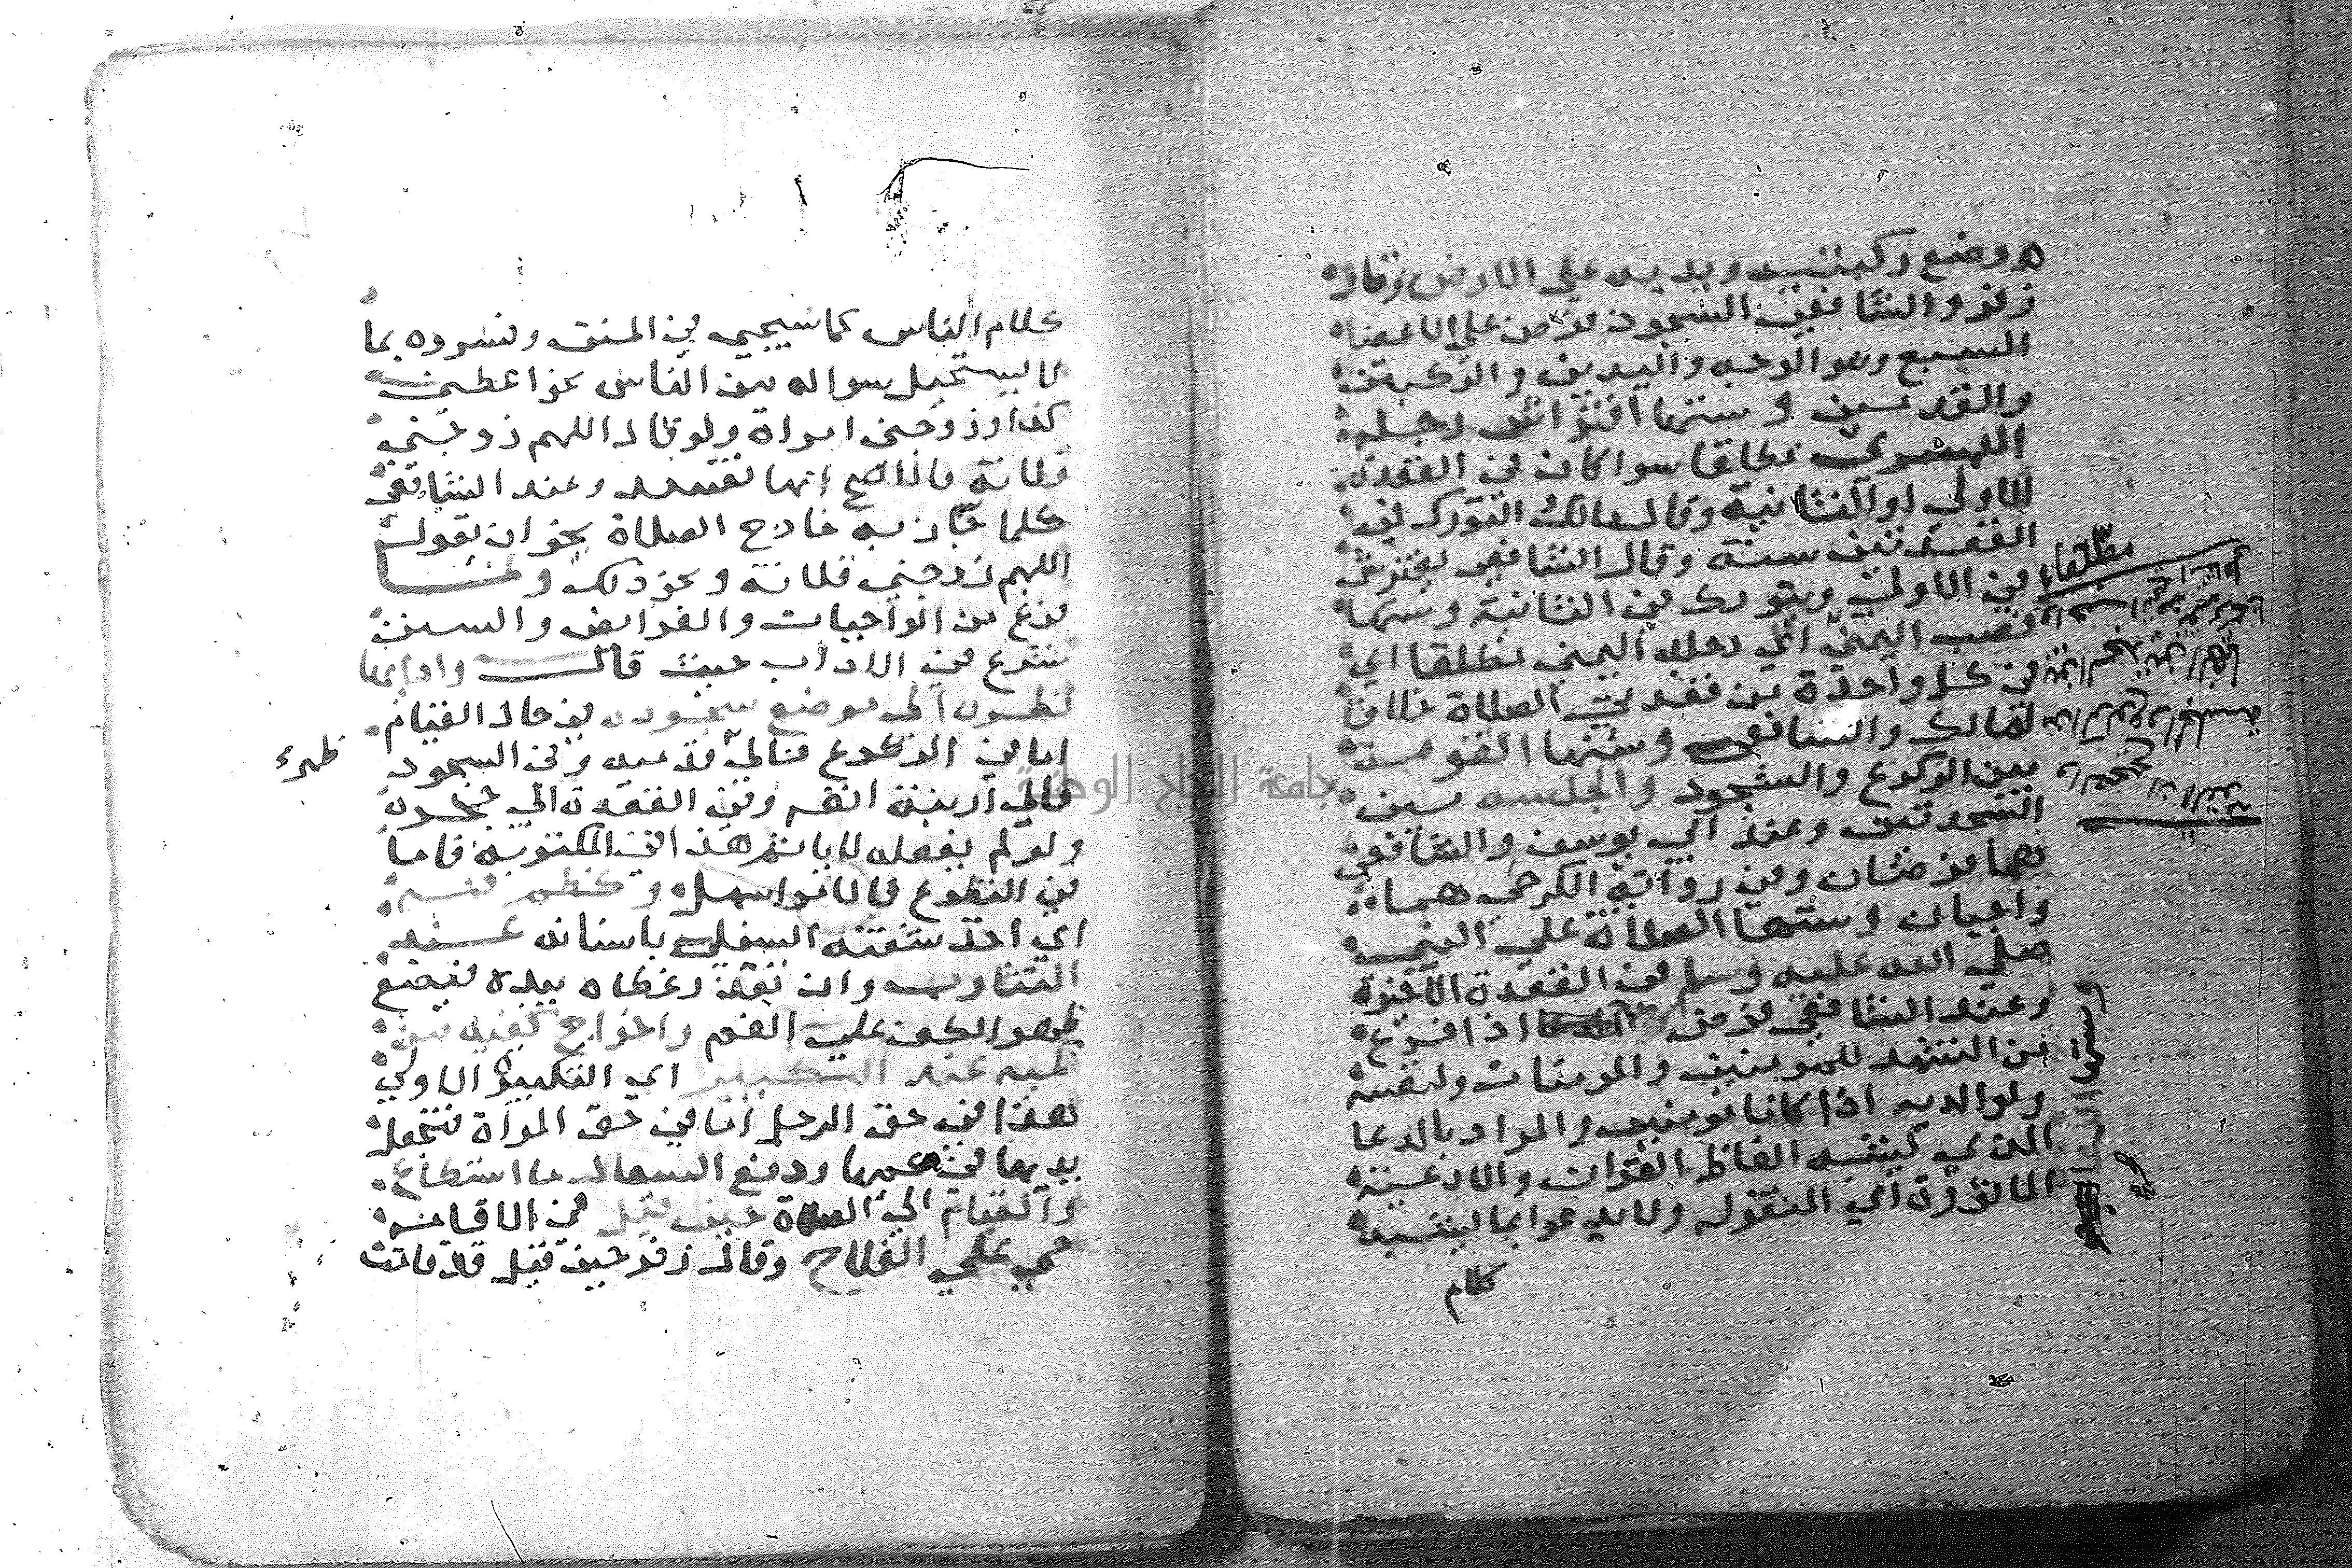 ه ووضع ركبتيه ويديه على الارض وقال
زفر والشافعي السجود فرض على الاعضاء
السبع وهو الوجه واليدين والركبتين
والقدمين وسنتها افتراش رجله
اليسرى مطلقا سوا كان في القعدة
الاولى او الثانية وقال مالك التورك في
القعدتين سنة وقال الشافعي يفترش
في الاولى ويتورك في الثانية وسنتها
نصب اليمنى اي رجله اليمنى مطلقا اي
في كل واحدة من قعدتي الصلاة خلافا
لمالك والشافعي وسننها القومة
بين الركوع والسجود والجلسه بين
السجدتين وعند ابي يوسف والشافعي
هما فرضان وفي رواية الكرخي هما
واجبان وسنتها الصلاة على النبي
صلى الله عليه وسلم في القعدة الاخيرة
وعند الشافعي فرض اذا فرغ
من التشهد للمومنين والمومنات ولنفسه
ولوالديه اذا كانا مومنين والمراد بالدعا
الذي يشبه الفاظ القران والادعية
الماثورة اي المنقوله ولا يدعوا بما يشبه
كلام
مطلقاء
وسنتها الدعا
جامعة النجاح الوطنية
كلام الناس كما سيجي في المتن وفسروه بما
لا يستحيل سواله من الناس نحو اعطني
كذا وزوجني امراة ولو قال اللهم زوجني
فلانة فالاصح انها تفسد وعند الشافعي
كلما جاز به خارج الصلاة نحو ان يقول
اللهم زوجني فلانة ونحو ذلك ولما
فرغ من الواجبات والفرايض والسنن
شرع في الاداب حيث قال وادابها
نظره الى موضع سجوده في حال القيام
اما في الركوع فالى قدميه وفي السجود
فالى ارنبة انفه وفي القعدة الى حجره
ولو لم يفعله لا ياثم هذا في المكتوبة فاما
في التطوع فالامر اسهل وكظم فمه
اي اخذ شفته السفلى باسنانه عند
التثاوب وان تعذر غطاه بيده فيضع
ظهر الكف على الفم واخراج كفيه من
كميه عند التكبير اي التكبيرة الاولى
هذا في حق الرجل اما في حق المراة فتجعل
يديها في كمها ودفع السعال ما استطاع
والقيام الى الصلاة حين قيل في الاقامة
حي على الفلاح وقال زفر حين قيل قد قامت